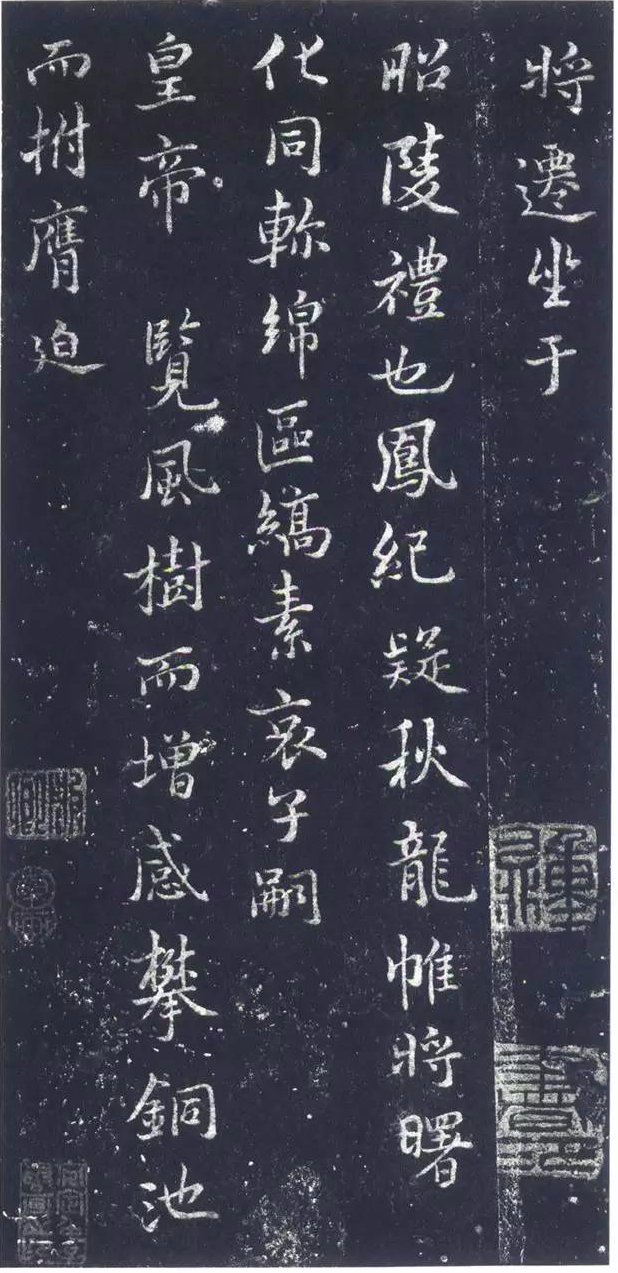 將遷坐于
昭陵禮也鳳紀疑秋龍帷將曙
化同軫綿區縞素哀子嗣
皇帝 覽風樹而增感攀銅池
而拊膺迫